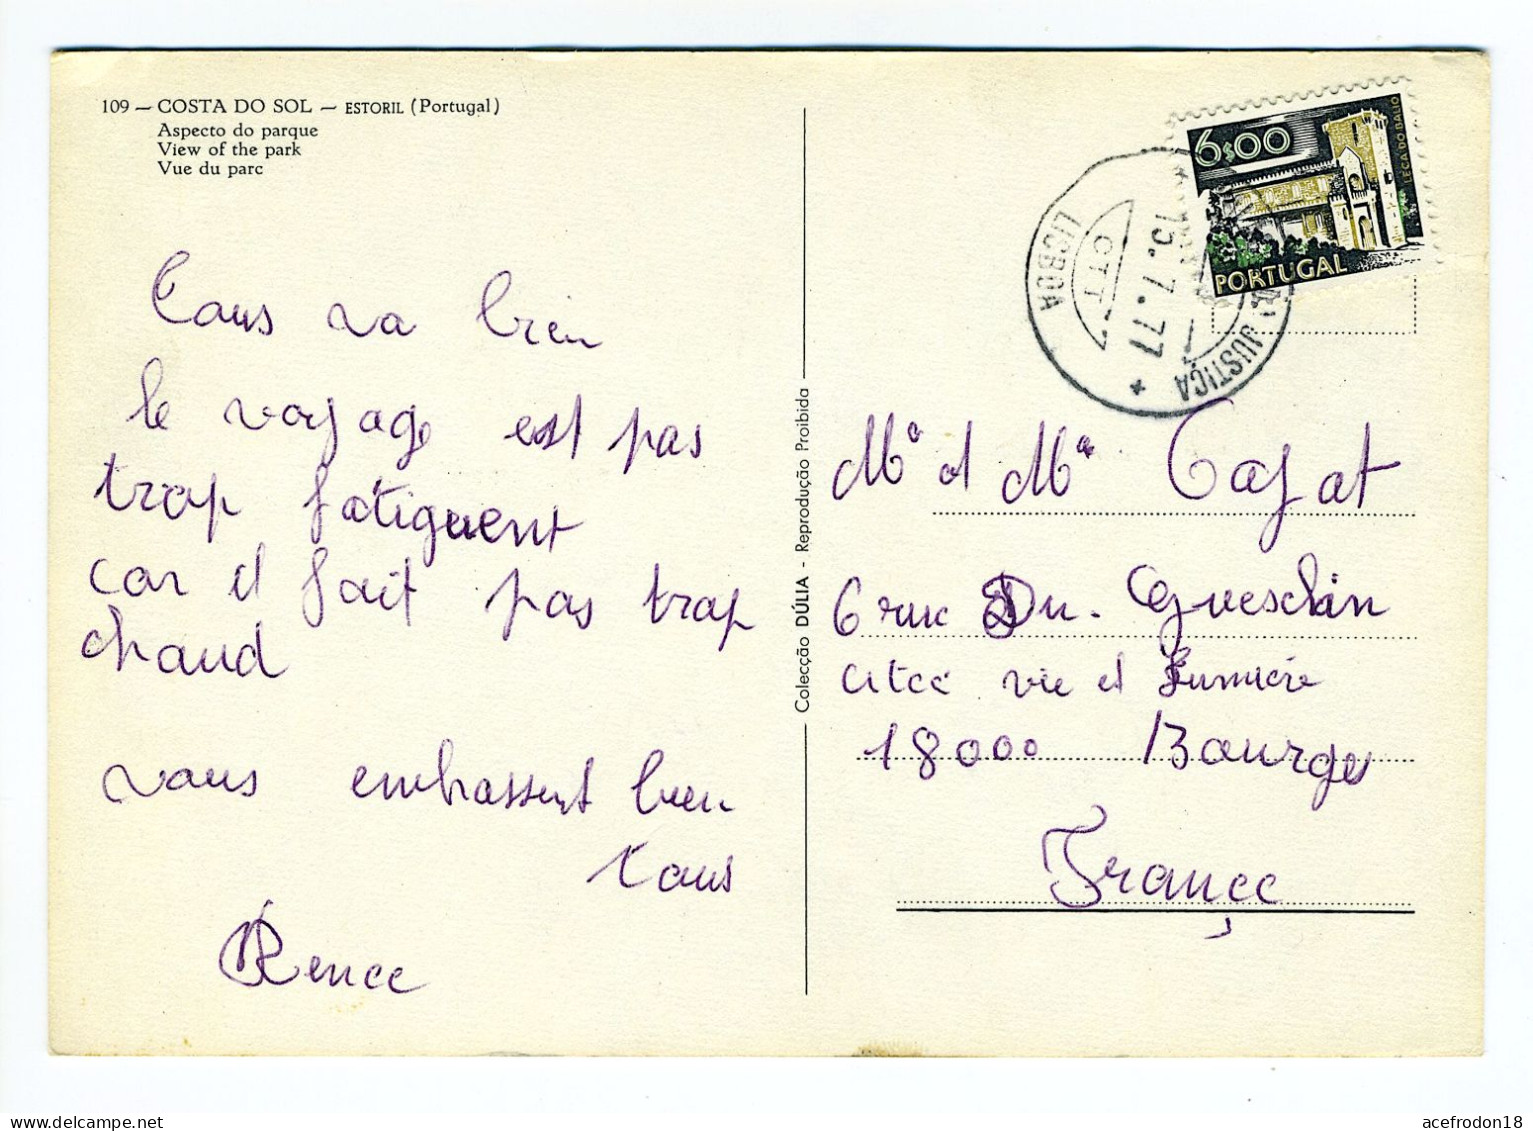 109 — COSTA DO SOL — ESTORIL (Portugal)
Aspecto do parque
View of the park
Vue du parc
Tous va bien
le voyage est pas
trop fatiguent
car il fait pas trop
chaud
vous embrassent bien
tous
Renee
Colecção DÚLIA - Reprodução Proibida
6$00
LEÇA DO BALIO
PORTUGAL
LISBOA
CTT
15.7.77
JUSTIÇA
Me et Me Cajat
6 rue Du. Guesclin
citee vie et Lumière
18000 Bourges
France
acefrodon18